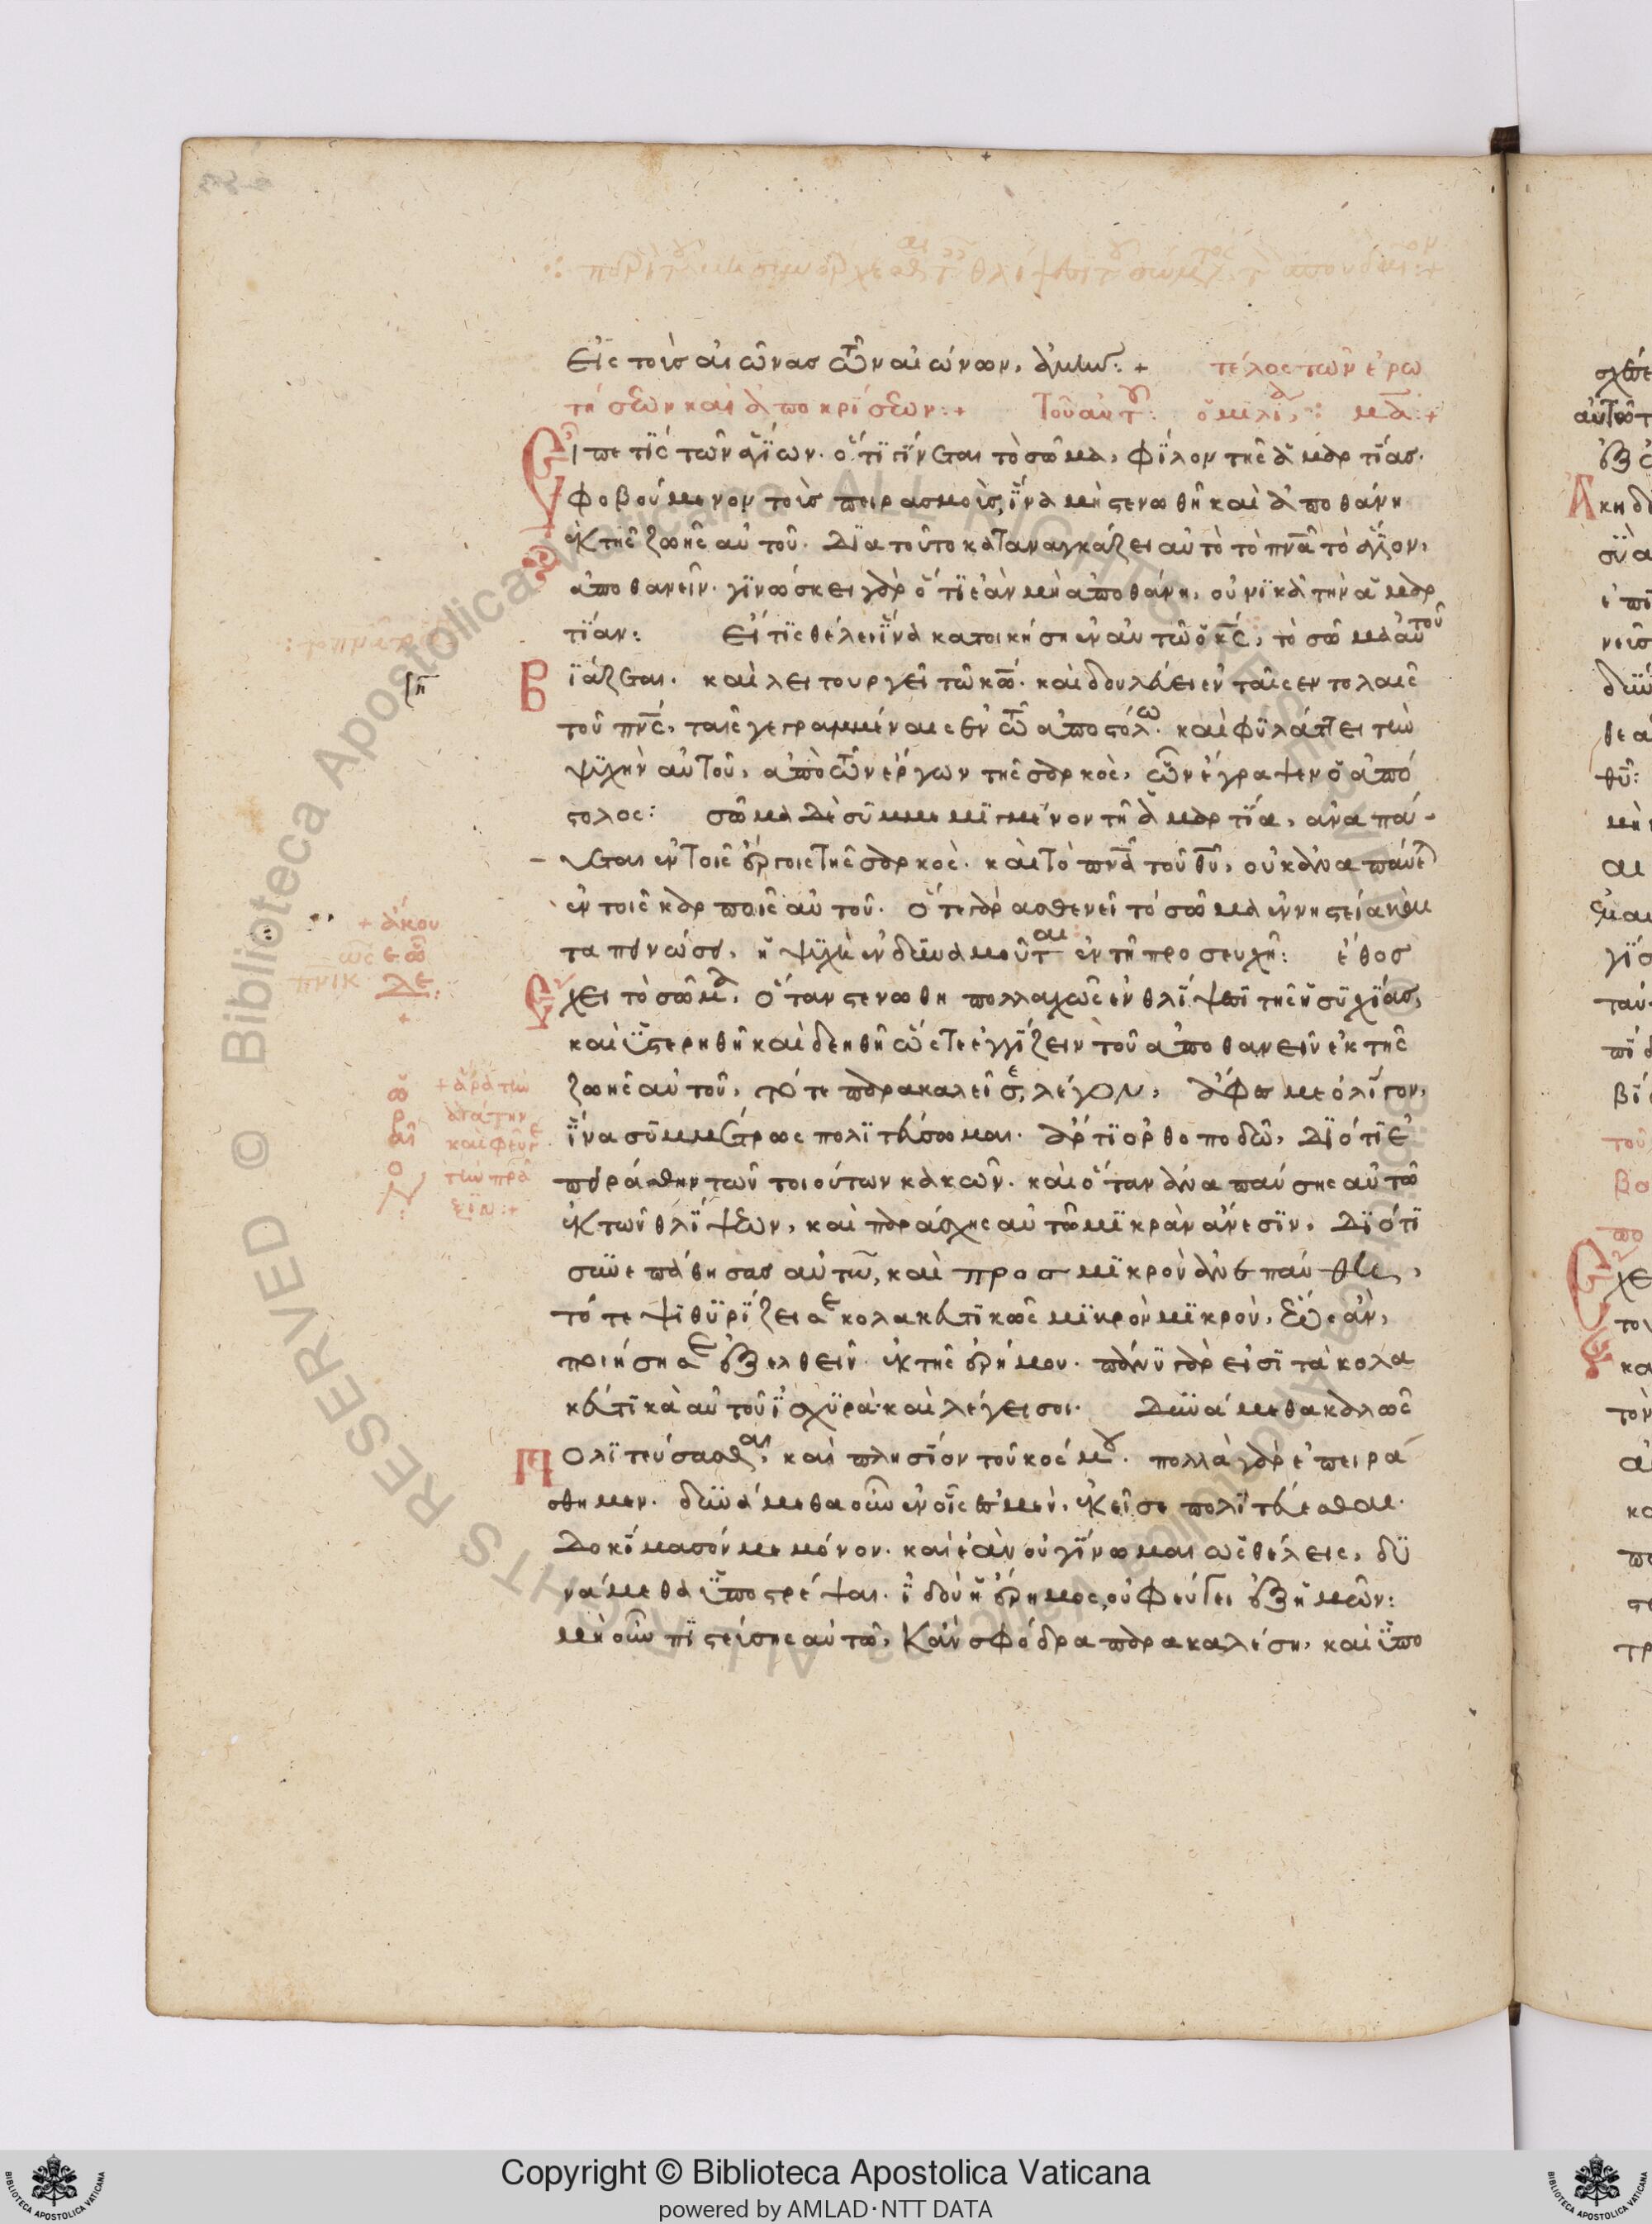 εἰς τοὺς αἰῶνας τῶν αἰώνων, ἀμήν:+ τέλος τῶν ἐρω
τήσεων καὶ ἀποκρίσεων:+ Τοῦ αὐτοῦ: ὁμιλία: μδ:+
Εἶπέ τις τῶν ἁγίων. ὅτι γίνεται τὸ σῶμα, φίλον τῆς ἁμαρτίας.
φοβούμενον τοὺς πειρασμοὺς, ἵνα μὴ στενωθῆ καὶ ἀποθάνη
ἐκ τῆς ζωῆς αὐτοῦ. Διατοῦτο καταναγκάζει αὐτὸ τὸ πνα τὸ ἅγιον,
ἀποθανεῖν. γινώσκει γὰρ ὅτι ἐὰν μὴ ἀποθάνη, οὐ νικᾶ τὴν ἁμαρ
τίαν: Εἴ τις θέλει ἵνα κατοικήση ἐν αὐτῶ ὁ κς, τὸ σῶμα αὐτοῦ
Βιάζεται. καὶ λειτουργεῖ τῶ κω. καὶ δουλεύει ἐν ταῖς ἐντολαῖς
τοῦ πνς, ταῖς γεγραμμέναις ἐν τῶ ἀποστόλω. καὶ φυλάττει τὴν
ψυχὴν αὐτοῦ, ἀπὸ τῶν ἔργων τῆς σαρκὸς, ὧν ἔγραψεν ὁ ἀπό
στολος: σῶμα δὲ συμμεμιγμένον τῆ ἁμαρτία, ἀναπαύ-
-εται ἐν τοῖς ἔργοις τῆς σαρκὸς. καὶ τὸ πνα τοῦ θυ, οὐκ ἀναπαύε
ἐν τοῖς καρποῖς αὐτοῦ. Ὅτε γὰρ ἀσθενεῖ τὸ σῶμα ἐν νηστεία καὶ
ταπεινώσει, ἡ ψυχὴ ἐνδυναμοῦται ἐν τῆ προσευχῆ: ἔθος
Ἔχει τὸ σῶμα, ὅταν στενωθῆ πολλαχῶς ἐν θλίψεσι τῆς ἡσυχίας,
καὶ ὑστερηθῆ καὶ δεηθῆ ὥστε ἐγγίζειν τοῦ ἀποθανεῖν ἐκ τῆς
ζωῆς αὐτοῦ, τότε παρακαλεῖ σε, λέγον, ἄφες με ὀλίγον,
ἵνα συμμέτρως πολιτεύσωμαι. ἄρτι ὀρθοποδῶ, διότι ἐ
πειράσθην τῶν τοιούτων κακῶν. καὶ ὅταν ἀναπαύσης αὐτῶ
ἐκ τῶν θλίψεων, καὶ παράσχης αὐτῶ μικρὰν ἄνεσιν, διότι
συνεπάθησας αὐτῶ, καὶ προσμικρὸν
τότε ψιθυρίζει σε κολακευτικῶς μικρὸν μικρὸν, ἕως ἂν,
ποιήση σε ἐξελθεῖν ἐκ τῆς ἐρήμου. πάνυ γὰρ εἰσὶ τὰ κολα
κευτικὰ αὐτοῦ ἰσχυρὰ. καὶ λέγει σοι. Δυνάμεθα καλῶς
Πολιτεύσασθαι, καὶ πλησίον τοῦ κόσμου. πολλὰ γὰρ ἐπειρά
σθημεν. δυνάμεθα οὖν ἐν οἷς ἐσμὲν, ἐκεῖσε πολιτεύεσθαι.
Δοκίμασόν με μόνον. καὶ ἐὰν οὐ γίνωμαι ὡς θέλεις, δυ
νάμεθα ὑποστρέψαι. ἰδοὺ ἡ ἔρημος, οὐ φεύγει ἐξ ἡμῶν:
μὴ οὖν πιστεύσης αὐτῶ, κἂν σφόδρα παρακαλέση, καὶ ὑπο
+ ἄκου
ὡραῖον
+ ὅρα τὴν
ἀπάτην
καὶ φεῦγε
τὴν πρᾶ
ξιν:+
Copyright © Biblioteca Apostolica Vaticana
powered by AMLAD·NTT DATA